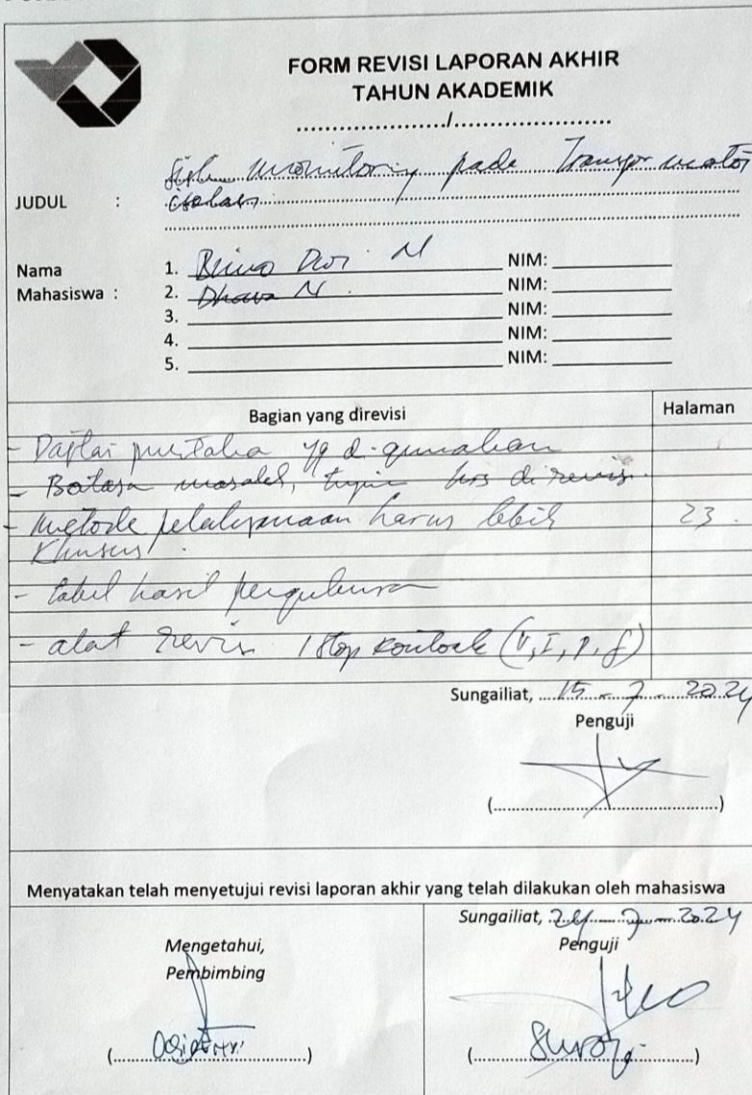 FORM REVISI LAPORAN AKHIR
TAHUN AKADEMIK
......................./.......................
JUDUL : monitoring pada Transformator
Nama
Mahasiswa :
1. Dwi N NIM:
2. N. NIM:
3. NIM:
4. NIM:
5. NIM:
Bagian yang direvisi Halaman
- Daftar pustaka yg digunakan
- Batasan masalah, tujuan hrs direvisi.
- metode pelaksanaan harus lebih 23.
khusus.
- tabel hasil
- alat revisi 1 stop kontak (V, I, P, f)
Sungailiat, 15 - 7 - 2024
Penguji
(..........................................)
Menyatakan telah menyetujui revisi laporan akhir yang telah dilakukan oleh mahasiswa
Mengetahui,
Pembimbing
Sungailiat, 24 - 7 - 2024
Penguji